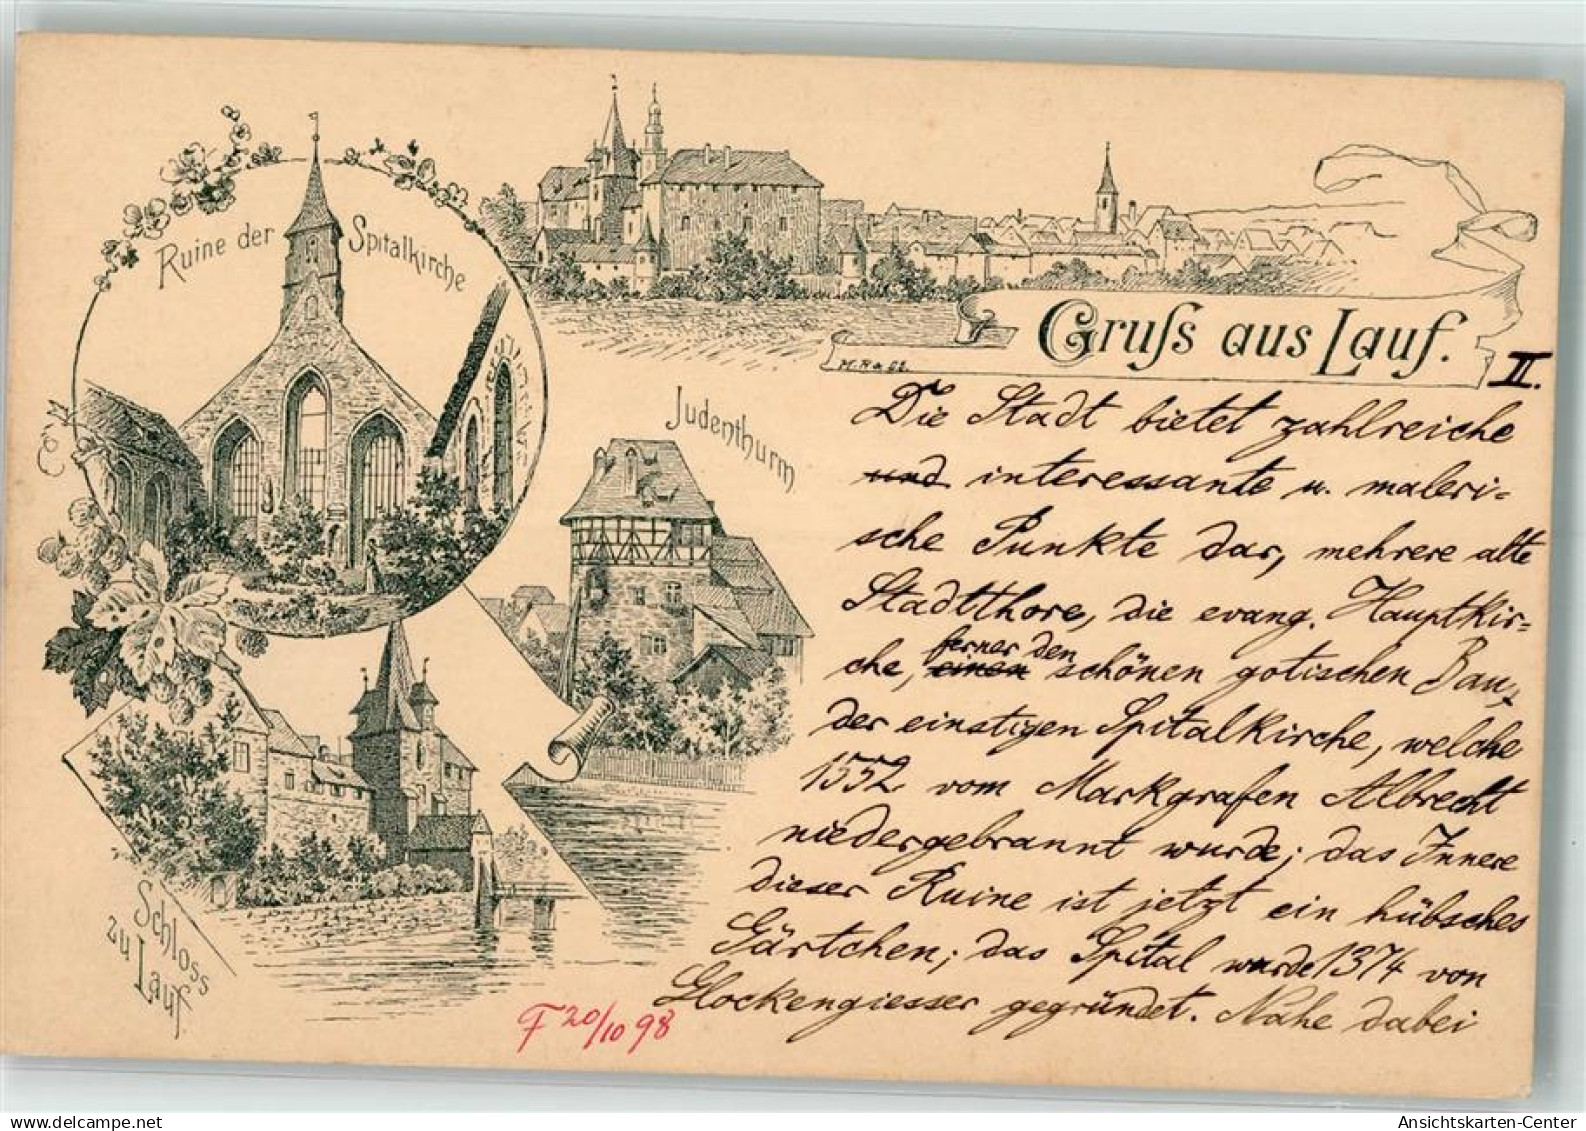 Ruine der Spitalkirche
Gruſs aus Lauf.
M. R & Cº.
II.
Judenthurm
Schloss
zu Lauf.
Die Stadt bietet zahlreiche
und interessante u. maleri=
sche Punkte dar, mehrere alte
Stadtthore, die evang. Hauptkir=
ferner den
che, einen schönen gotischen Bau,
der einstigen Spitalkirche, welche
1552 vom Markgrafen Albrecht
niedergebrannt wurde; das Innere
dieser Ruine ist jetzt ein hübsches
Gärtchen; das Spital wurde 1374 von
Glockengiesser gegründet. Nahe dabei
F 20/10 98
Ansichtskarten-Center